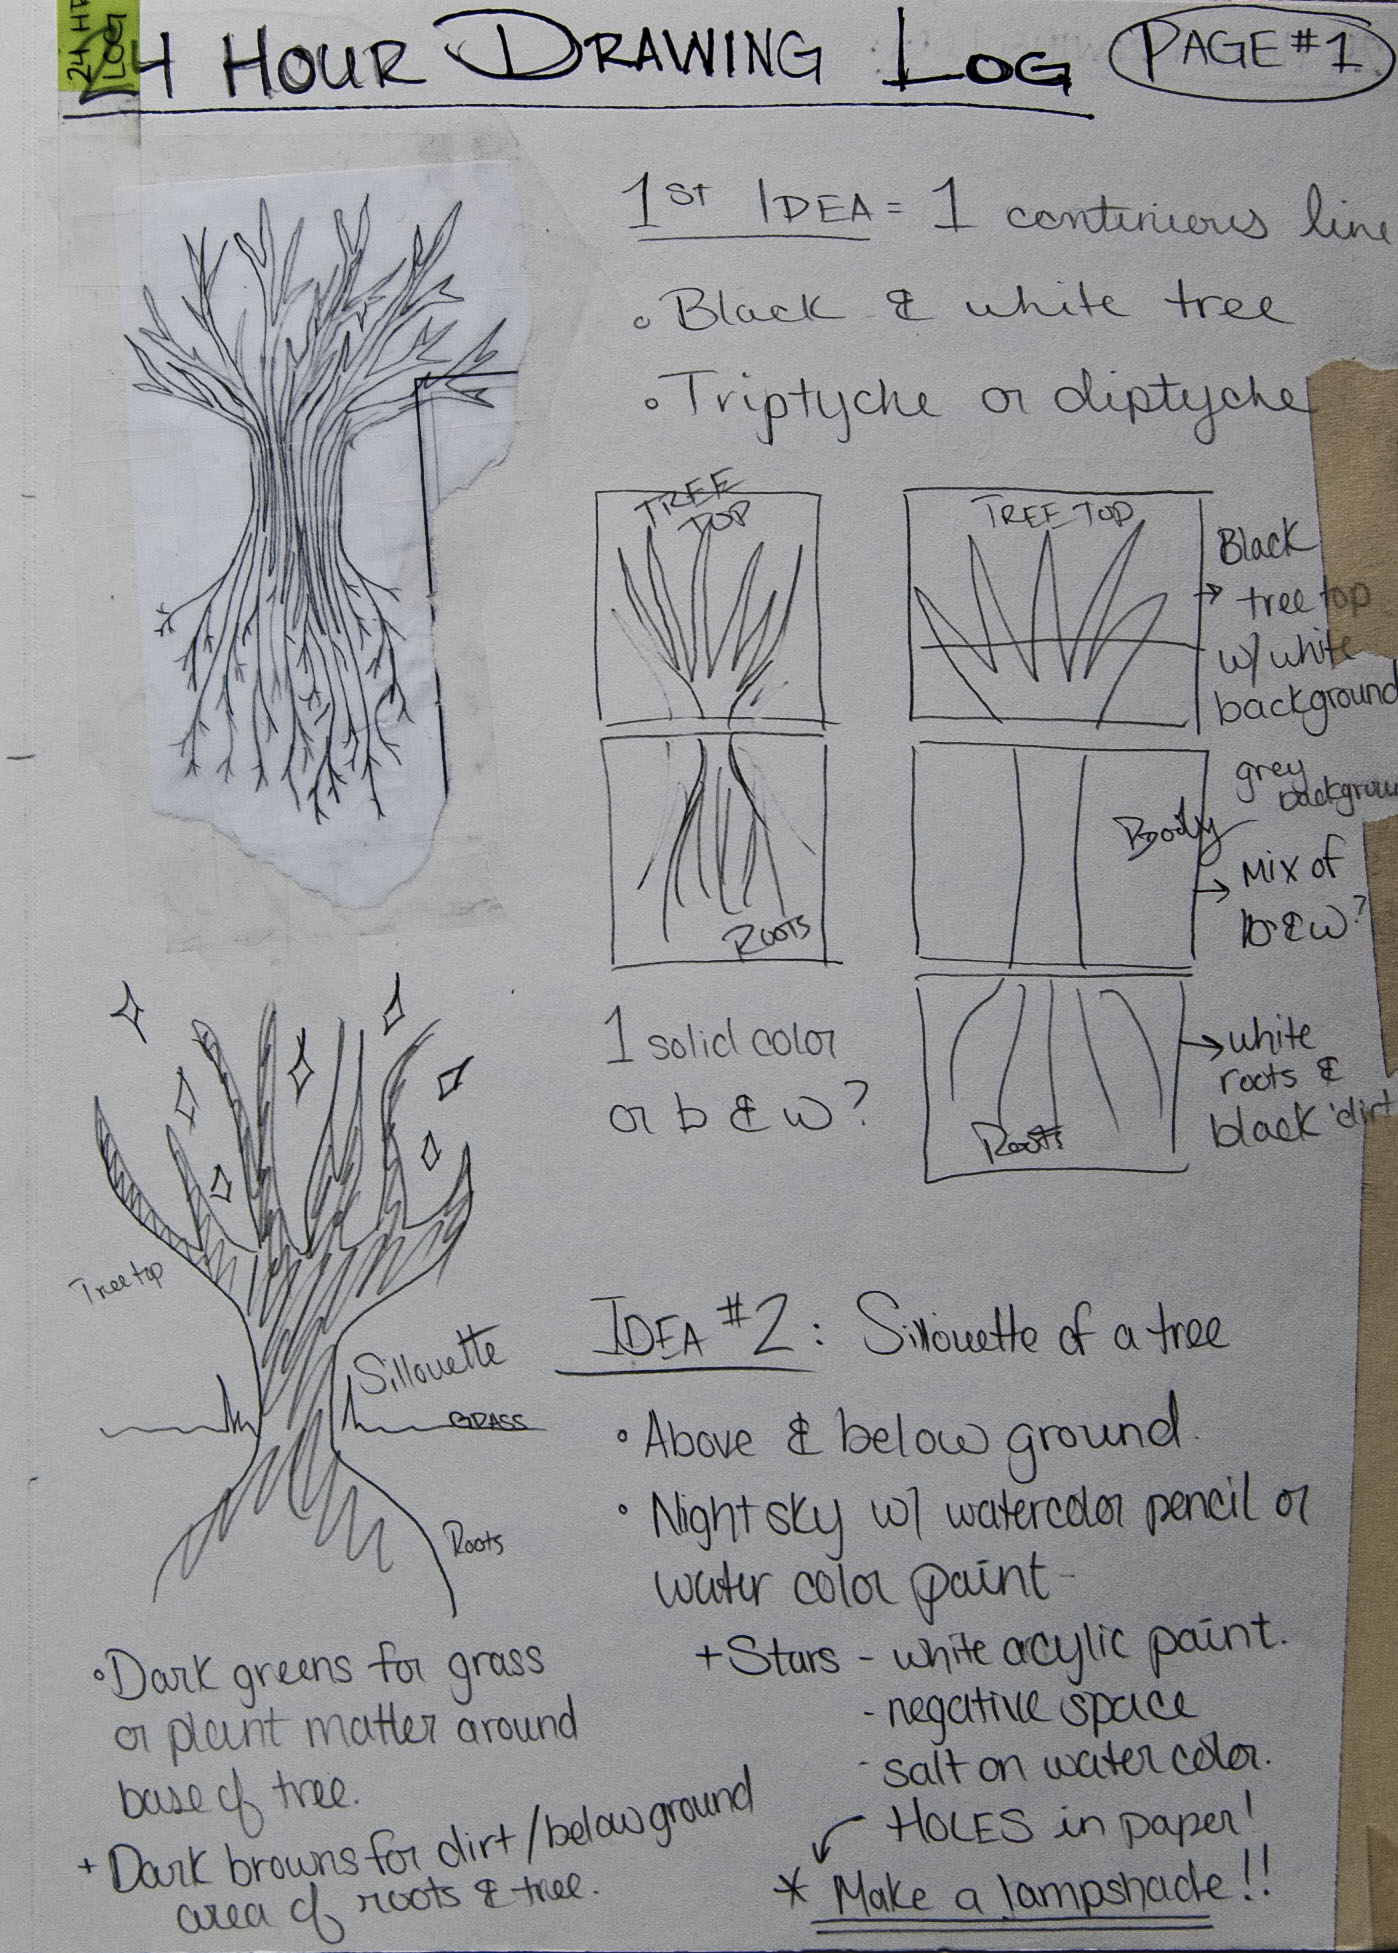 24 HR
LOG
24 HOUR DRAWING LOG PAGE #1
1ST IDEA = 1 continious line
Black & white tree
Triptyche or diptyche
TREE
TOP
TREE TOP
Black
tree top
w/ white
background
ROOTS
Body
grey
backgroun
MIX OF
b & w?
1 solid color
or b & w?
Roots
white
roots &
black 'dirt
Tree top
Sillouette
GRASS
Roots
IDEA #2: Sillouette of a tree
Above & below ground.
Night sky w/ watercolor pencil or
water color paint-
+ Stars - white acylic paint.
- negative space
- salt on water color.
HOLES in paper!
* Make a lampshade!!
Dark greens for grass
or plant matter around
base of tree.
+ Dark browns for dirt / below ground
area of roots & tree.